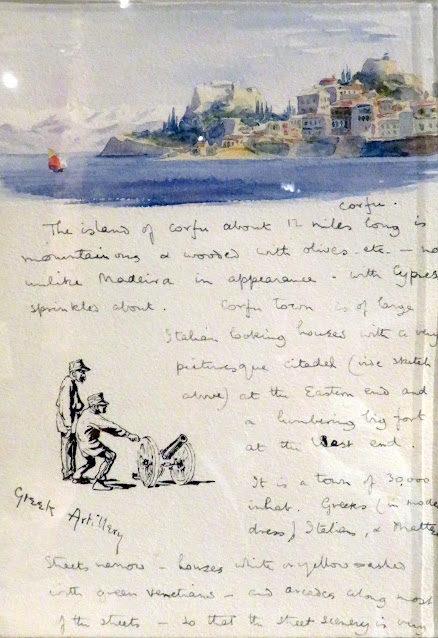 Corfu.
The island of Corfu about 12 miles long is
mountainous & wooded with olives etc — no
unlike Madeira in appearance - with Cypres
sprinkles about. Corfu Town is of large
Italian looking houses with a very
picturesque citadel (vide sketch
above) at the Eastern end and
a lumbering big fort
at the West end.
It is a town of 30,000
inhab. Greeks (in mode
dress) Italians, & Maltes
Greek Artillery
Streets narrow - houses white or yellow washed
with green venetians - and arcades along most
of the streets - so that the street scenery is very